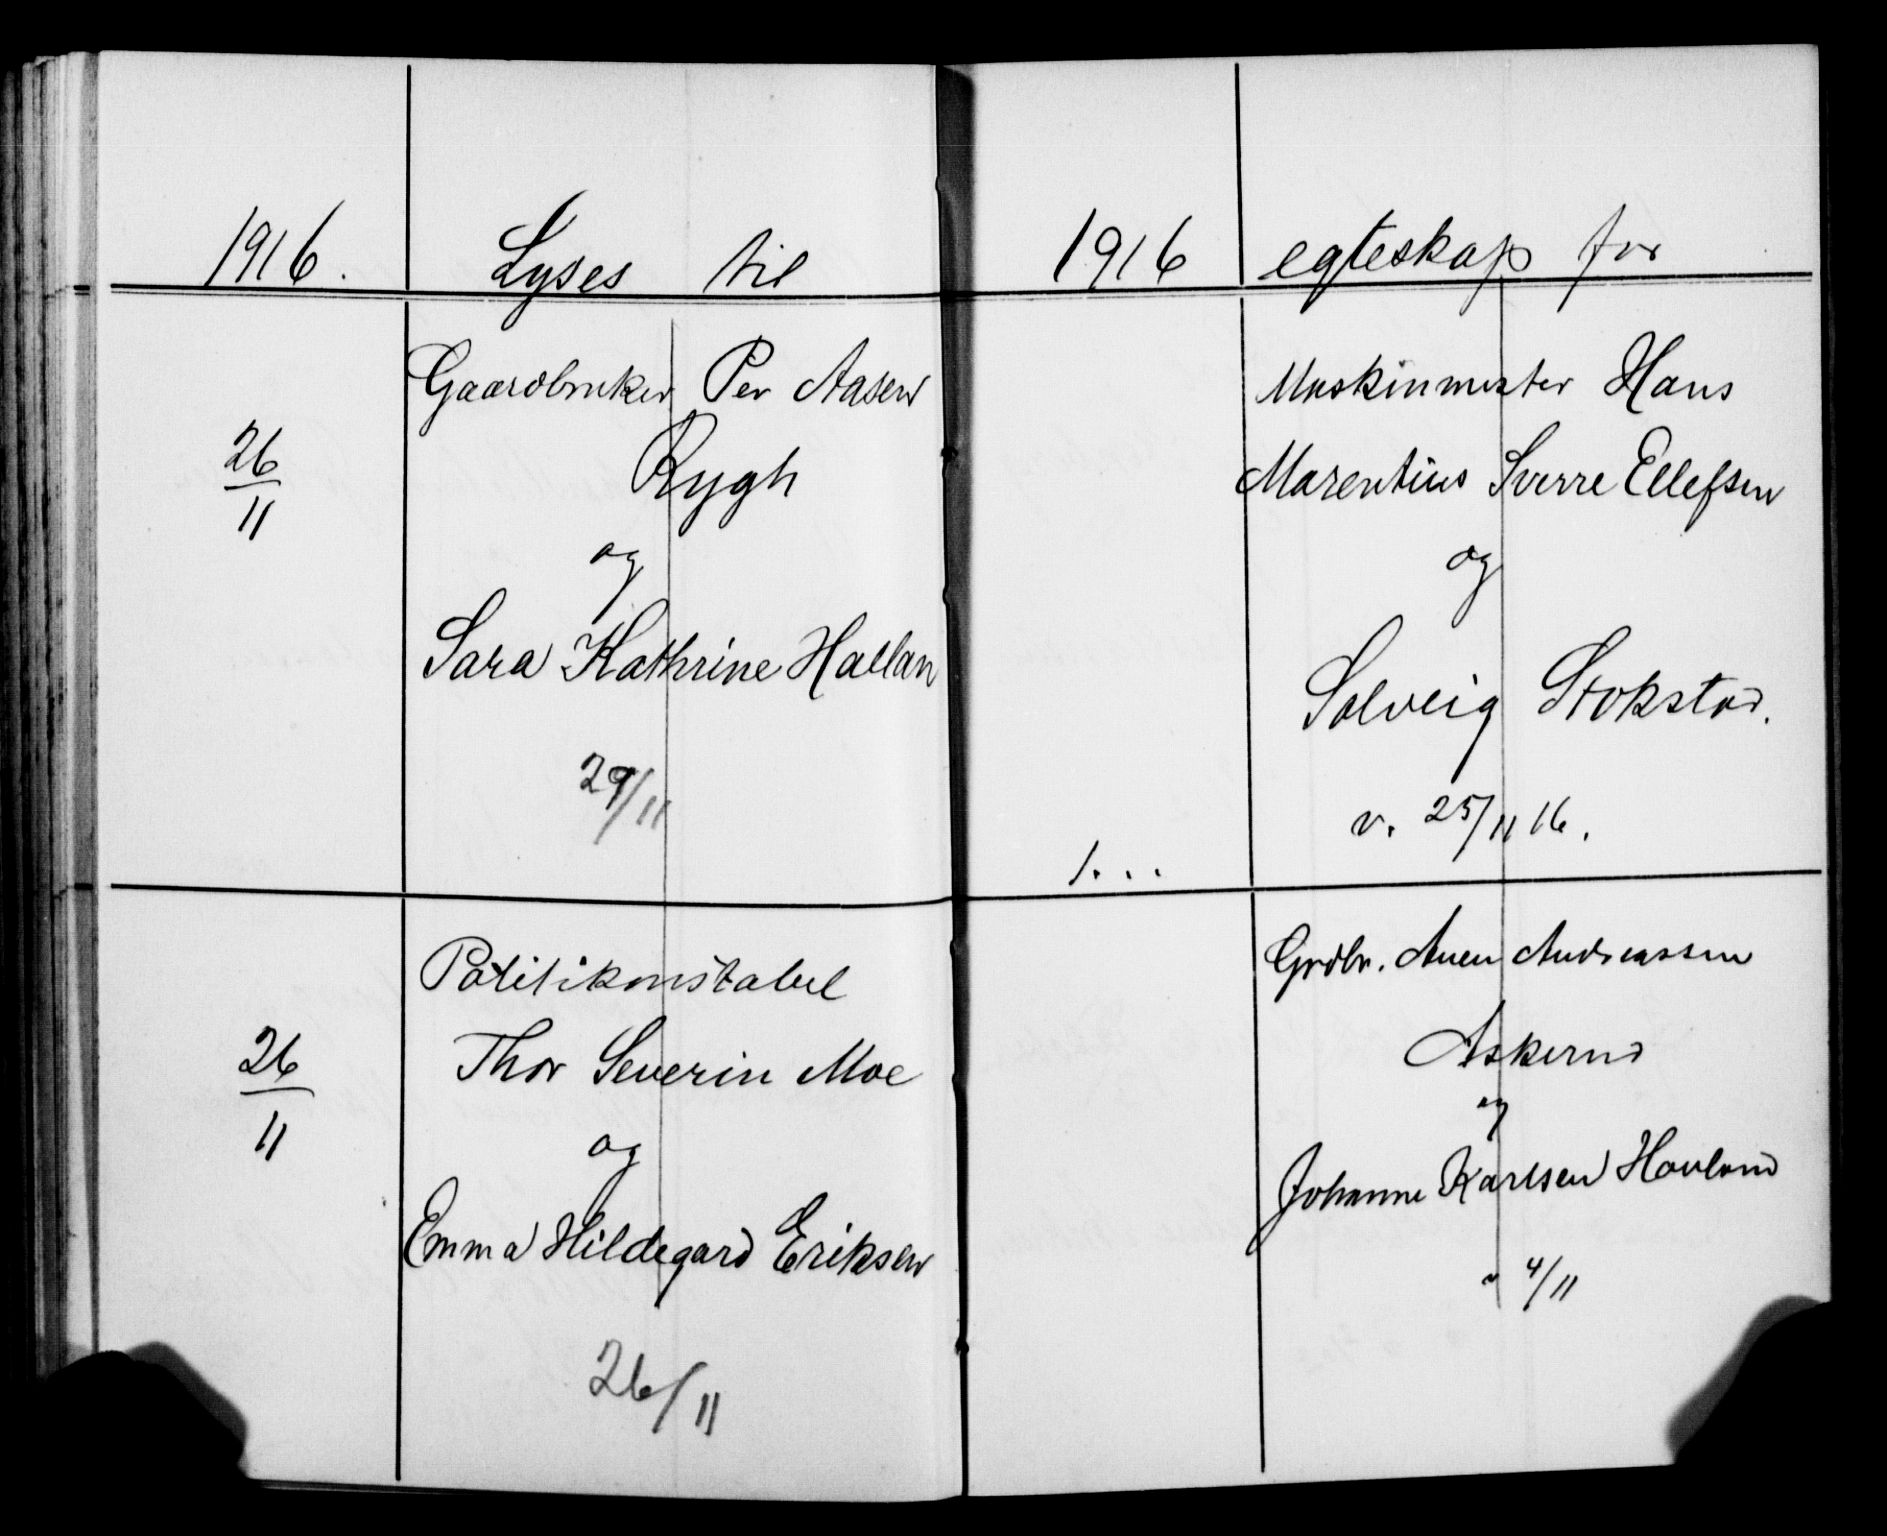 1916.
Lyses til
26
11
Gaardbruker Per Aasen
Rygh
og
Sara Kathrine Hallan
29/11
26
11
Politikonstabel
Thor Severin Moe
og
Emma Hildegard Eriksen
26/11
1916
egteskap for
Maskinmester Hans
Marentius Sverre Ellefsen
og
Solveig Stokstad.
v. 25/11 16.
1...
Grdbr. Andreassen
og
Johanne Karlsen Hovland
v 4/11